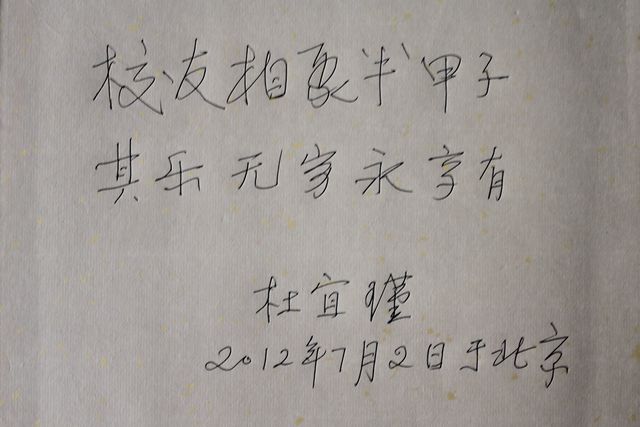 校友相聚半甲子
其乐无穷永享有
杜宜瑾
2012年7月2日于北京